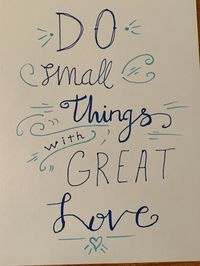 DO
small
Things
with
GREAT
Love